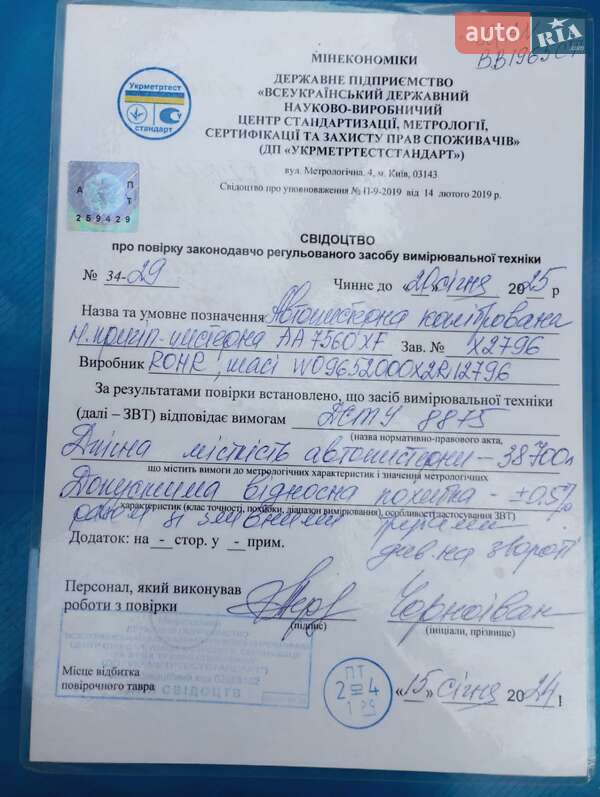 auto RIA .com
ВВ1963СТ
МІНЕКОНОМІКИ
ДЕРЖАВНЕ ПІДПРИЄМСТВО
«ВСЕУКРАЇНСЬКИЙ ДЕРЖАВНИЙ
НАУКОВО-ВИРОБНИЧИЙ
ЦЕНТР СТАНДАРТИЗАЦІЇ, МЕТРОЛОГІЇ,
СЕРТИФІКАЦІЇ ТА ЗАХИСТУ ПРАВ СПОЖИВАЧІВ»
(ДП «УКРМЕТРТЕСТСТАНДАРТ»)
Укрметртест
стандарт
вул. Метрологічна, 4, м. Київ, 03143
Свідоцтво про уповноваження № П-9-2019 від 14 лютого 2019 р.
А П
Т
259429
СВІДОЦТВО
про повірку законодавчо регульованого засобу вимірювальної техніки
№ 34-29 Чинне до «20» січня 2025 р
Назва та умовне позначення Автоцистерна калібрована
н. причіп-цистерна АА 7560 ХF Зав. № Х2796
Виробник ROHR, шасі W09652000X2R12796
За результатами повірки встановлено, що засіб вимірювальної техніки
(далі – ЗВТ) відповідає вимогам ДСТУ 8875
(назва нормативно-правового акта,
Дійсна місткість автоцистерни – 38700л
що містить вимоги до метрологічних характеристик і значення метрологічних
Допустима відносна похибка - ±0.5%
характеристик (клас точності, похибки, діапазон вимірювання), особливості застосування ЗВТ)
разом зі зливними рукавами
див. на звороті
Додаток: на – стор. у – прим.
Персонал, який виконував
роботи з повірки Чорноіван
(підпис) (ініціали, прізвище)
Місце відбитка
повірочного тавра
ПТ
2 4
1 29
«15» січня 2024